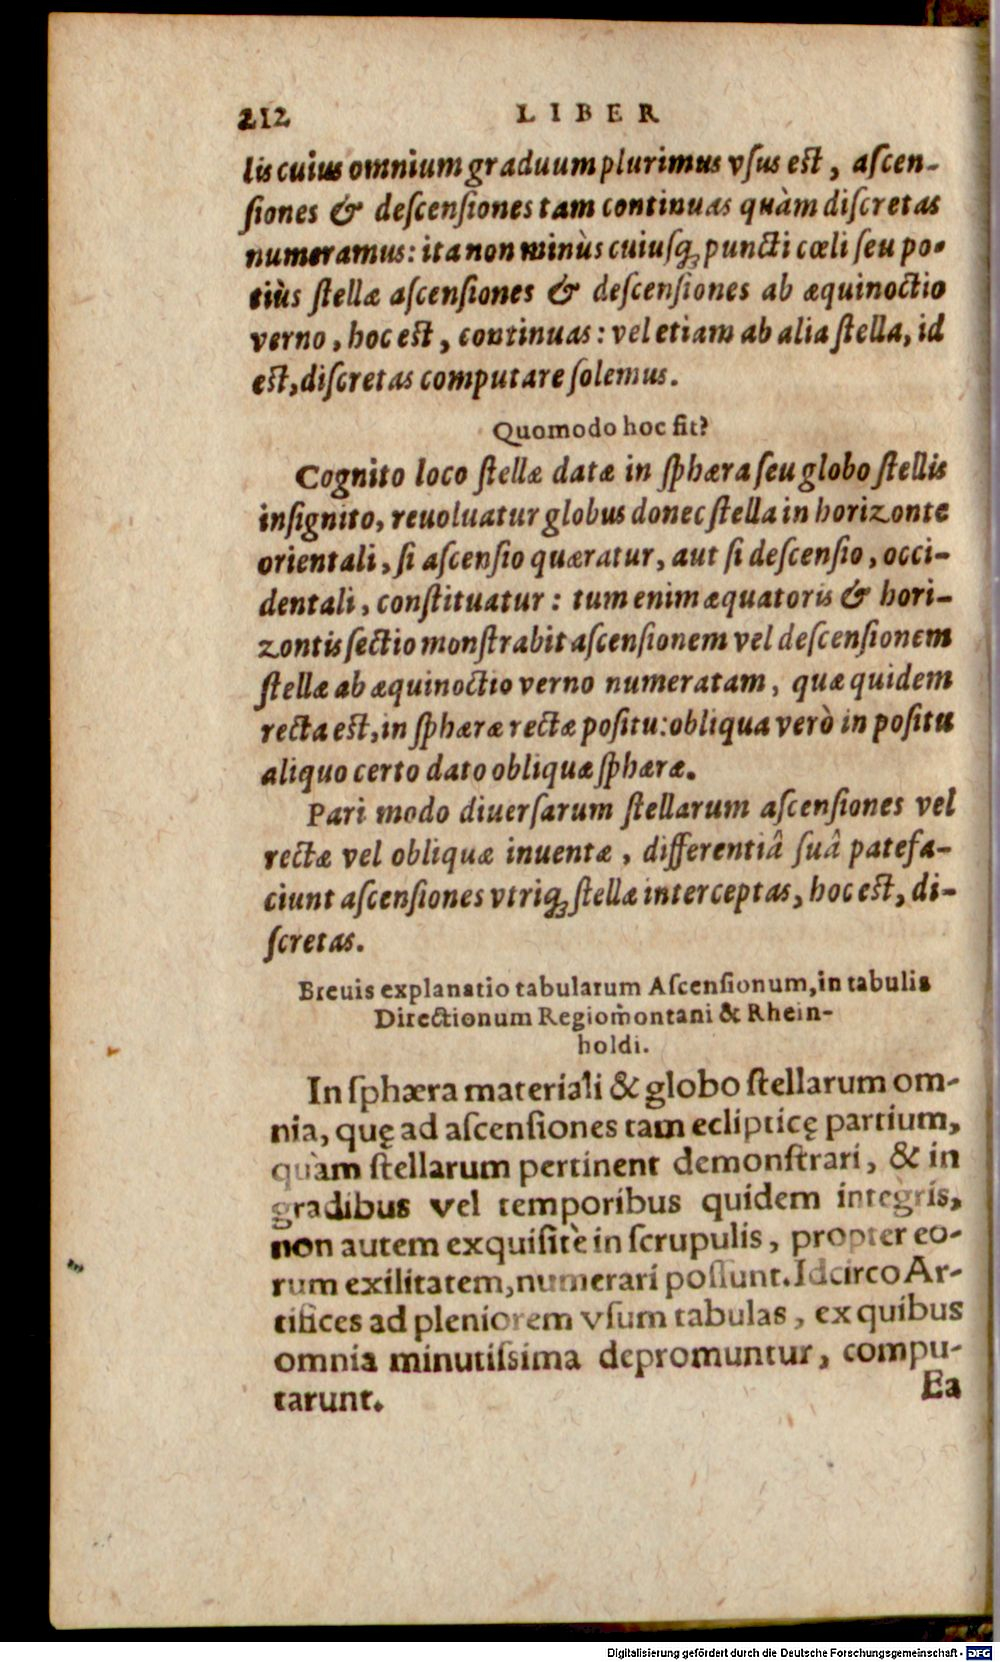 212 LIBER
lis cuius omnium graduum plurimus vſus eſt, aſcen-
ſiones & deſcenſiones tam continuas quàm diſcretas
numeramus: ita non minùs cuiuſq́ꝫ puncti cœli ſeu po-
tiùs ſtellæ aſcenſiones & deſcenſiones ab æquinoctio
verno, hoc eſt, continuas: vel etiam ab alia ſtella, id
eſt, diſcretas computare ſolemus.
Quomodo hoc fit?
Cognito loco ſtellæ datæ in ſphæra ſeu globo ſtellis
inſignito, reuoluatur globus donec ſtella in horizonte
orientali, ſi aſcenſio quæratur, aut ſi deſcenſio, occi-
dentali, conſtituatur: tum enim æquatoris & hori-
zontis ſectio monſtrabit aſcenſionem vel deſcenſionem
ſtellæ ab æquinoctio verno numeratam, quæ quidem
recta eſt, in ſphæræ rectæ poſitu: obliqua verò in poſitu
aliquo certo dato obliquæ ſphæræ.
Pari modo diuerſarum ſtellarum aſcenſiones vel
rectæ vel obliquæ inuentæ, differentiâ ſuâ patefa-
ciunt aſcenſiones vtriqꝫ ſtellæ interceptas, hoc eſt, di-
ſcretas.
Breuis explanatio tabularum Aſcenſionum, in tabulis
Directionum Regiom̀ontani & Rhein-
holdi.
In ſphæra materiali & globo ſtellarum om-
nia, quę ad aſcenſiones tam eclipticę partium,
quàm ſtellarum pertinent demonſtrari, & in
gradibus vel temporibus quidem integris,
non autem exquiſitè in ſcrupulis, propter eo-
rum exilitatem, numerari poſſunt. Idcirco Ar-
tifices ad pleniorem vſum tabulas, ex quibus
omnia minutiſsima depromuntur, compu-
tarunt.
Ea
Digitalisierung gefördert durch die Deutsche Forschungsgemeinschaft - DFG